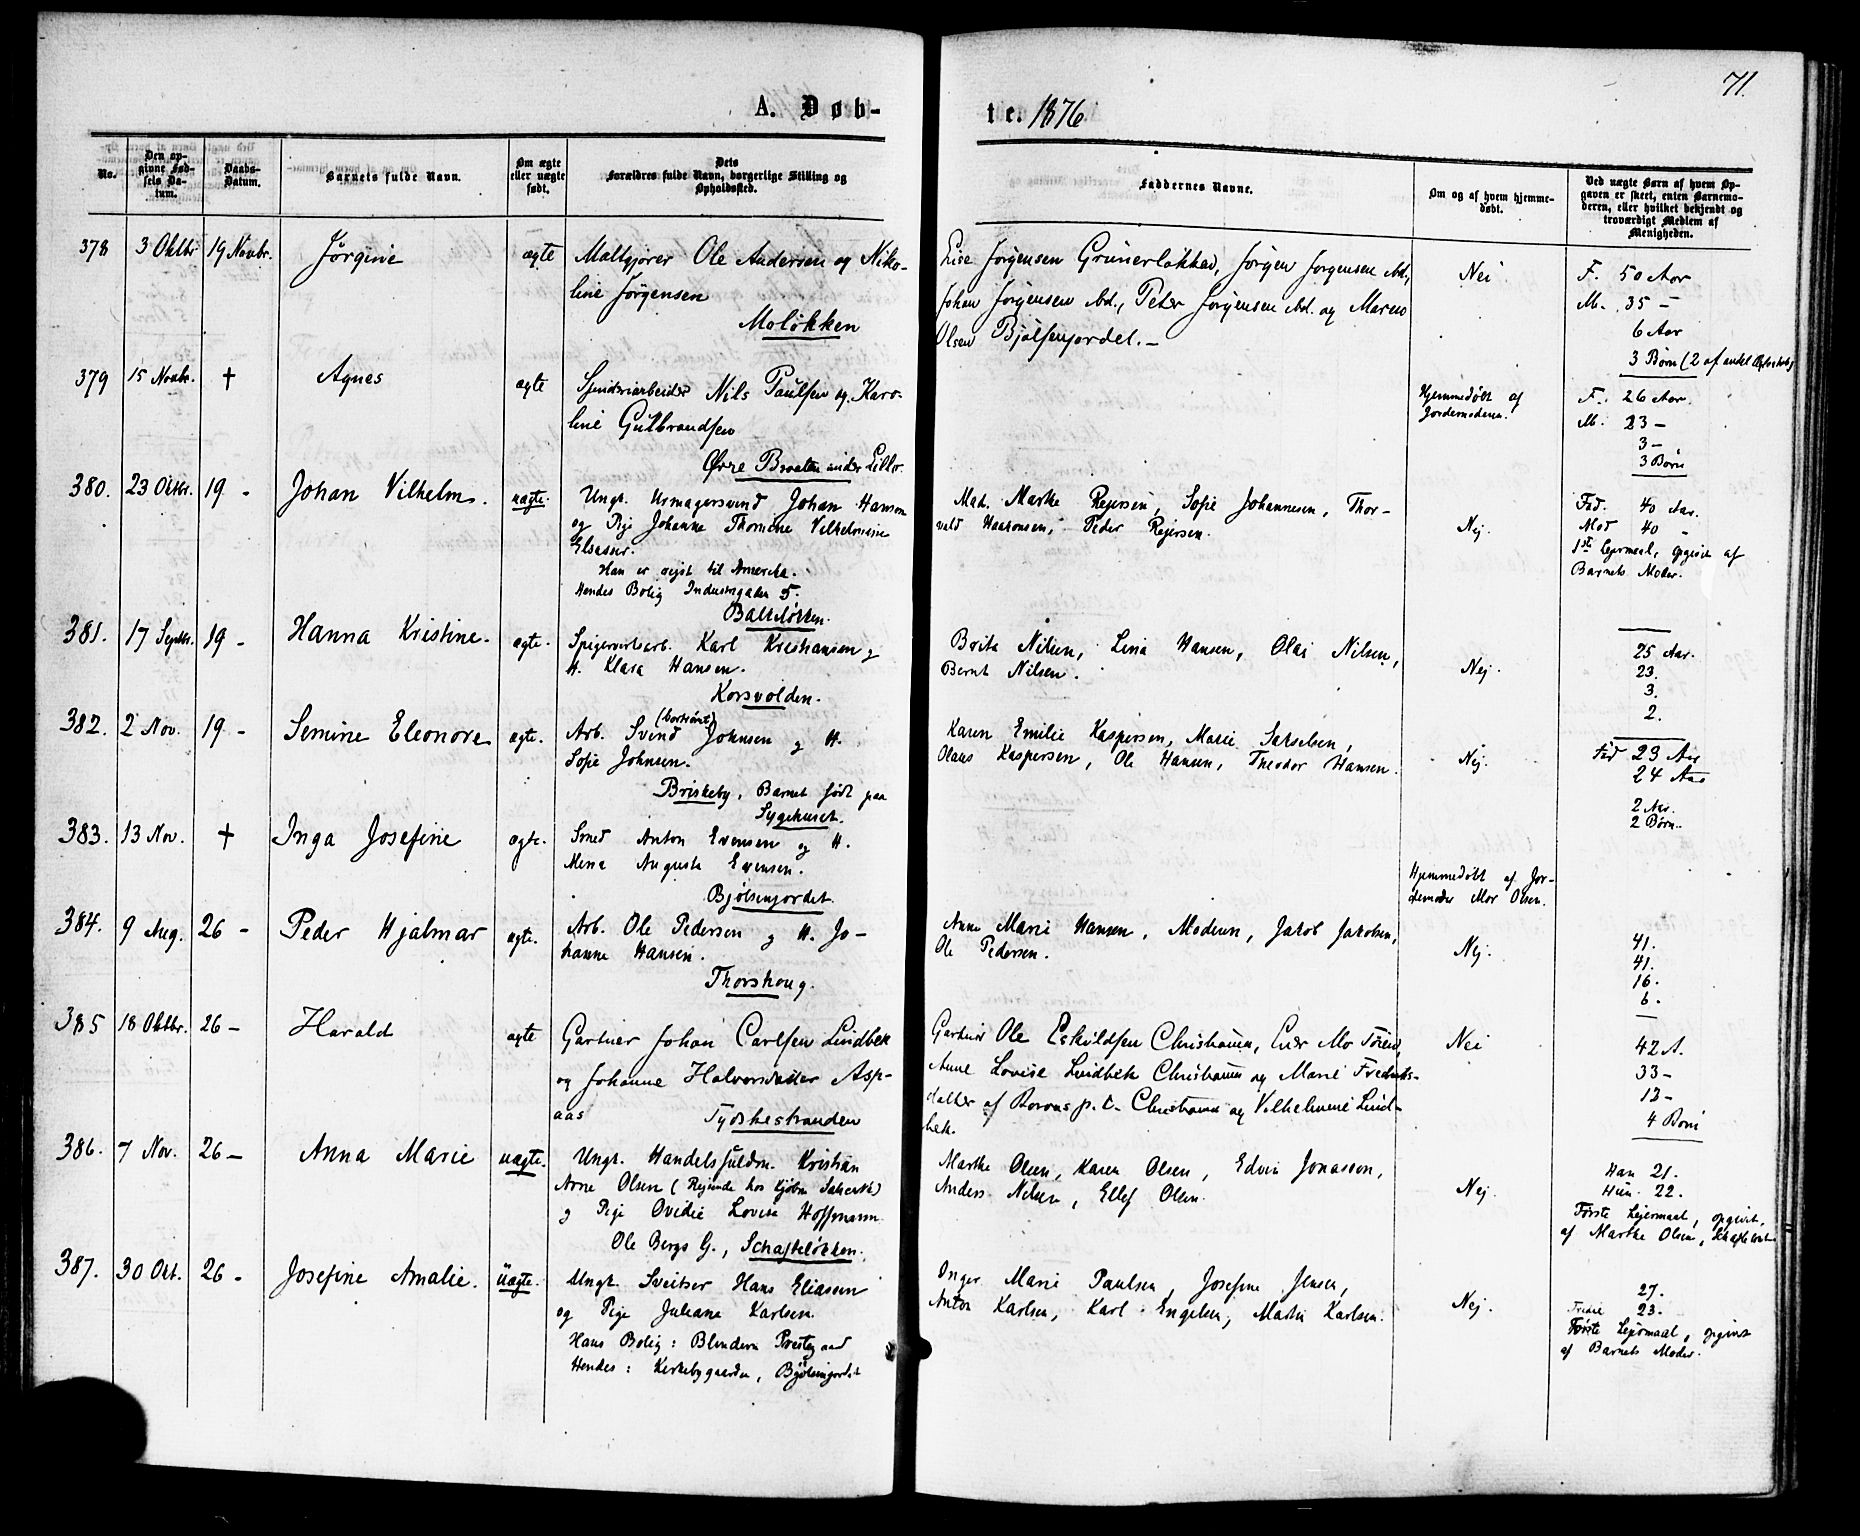 71.
A. Døb-
te. 1876
No.
Den op-
givne Fød-
sels Da-
tum.
Daabs-
Datum.
Barnets fulde Navn.
Om ægte
eller uægte
født.
Dets
Forældres fulde Navn, borgerlige Stilling og
Opholdssted.
Faddernes Navne.
Om og af hvem hjemme-
døbt.
Ved uægte Børn af hvem Op-
gaven er skeet, enten Barnemo-
deren, eller hvilket bekjendt og
troværdigt Medlem af
Menigheden.
378 3 Oktbr 19 Novbr. Jörgine ægte
Maltgjører Ole Andersen og Niko-
line Jörgensen
Moløkken
Lise Jörgensen Grünerløkken, Jörgen Jorgensen ibd.,
Johan Jorgensen ibd., Peter Jorgensen ibd. og Maren
Olsen Bjølsenjordet.-
Nei
F. 50 Aar
M. 35 -
6 Aar
3 Børn (2 af andet Ægteskab)
379 15 Novbr. † Agnes ægte
Spindriarbeider Nils Paulsen og Karo-
line Gulbrandsen
Øvre Braaten under Lillo.
Hjemmedøbt af
Jordemoderen.
F. 26 Aar.
M. 23 -
3 -
3 Børn
380. 23 Oktbr. 19 - Johan Vilhelm. uægte.
Ungk. Urmagersvend Johan Hanson
og Pige Johanne Thomine Vilhelmine
Elsasser.
Han er rejst til Amerika.
Hendes Bolig Industrigaden 5.
Balkeløkken.
Mad. Marthe Rejersen, Sofie Johannesen, Thor-
vald Haakonsen, Peder Rejersen.
Nej.
Fad. 40 Aar.
Mod 40 -
1ste Lejermaal, opgivet af
Barnets Moder.
381. 17 Septbr. 19 - Hanna Kristine. ægte.
Spigerverksarb. Karl Kristiansen og
H. Klara Hansen.
Korsvolden.
Brita Nilsen, Lina Hansen, Olai Nilsen,
Bernt Nilsen.
Nej.
25 Aar.
23.
3.
2.
382. 2 Nov. 19 - Semine Eleonore ægte.
(bortrömt)
Arb. Svend Johnsen og H.
Sofie Johnsen.
Briskeby, Barnet født paa
Sygehuset.
Karen Emilie Kaspersen, Marie
Olaus Kaspersen, Ole Hansen, Theodor Hansen.
Nej.
Fød 23 Aar
24 Aar
2 Aar.
2 Børn.
383. 13 Nov. † Inga Josefine ægte.
Smed Anton Evensen og H.
Mina Augusta Evensen.
Bjølsenjordet.
Hjemmedøbt af Jor-
demoder Mor Olsen.
384. 9 Aug. 26 - Peder Hjalmar ægte.
Arb. Ole Pedersen og H. Jo-
hanne Hansen.
Thorshoug.
Anne Marie Hansen, Moderen, Jakob Jakobsen,
Ole Pedersen.
Nej.
41.
41.
16.
6.
385 18 Oktbr. 26 - Harald ægte
Gartner Johan Carlsen Lindbek
og Johanne Halvorsdatter Asp-
aas
Tydskestranden
Gartner Ole Eskildsen Christiania,
Anne Lovise Lindbek Christiania og Marie Fredriks-
datter af Roraas p. t. Christiania og Vilhelmine Lind-
bek.
Nei
42 A.
33 -
13 -
4 Børn
386. 7 Nov. 26 - Anna Marie uægte.
Ungk. Handelsfuldm. Kristian
Arne Olsen (Rejsende hos Kjøbm.
og Pige Ovidie Lovise Hoffmann.
Ole Bergs G., Schafteløkken.
Marthe Olsen, Karen Olsen, Edvin Jonassen,
Anders Nilsen, Ellef Olsen.
Nej.
Han 21.
Hun 22.
Første Lejermaal, opgivet
af Marthe Olsen,
387. 30 Oct. 26 - Josefine Amalie. Uægte.
Ungk. Sveitser Hans Eliassen
og Pige Juliane Karlsen.
Hans Bolig: Blindern Prestegaard
Hendes: Kirkebygaarden, Bjølsenjordet
Inger Marie Paulsen, Josefine Jensen,
Anton Karlsen, Karl Engelsen, Martin Karlsen.
Nej.
27.
23.
Første Lejermaal, opgivet
af Barnets Moder.